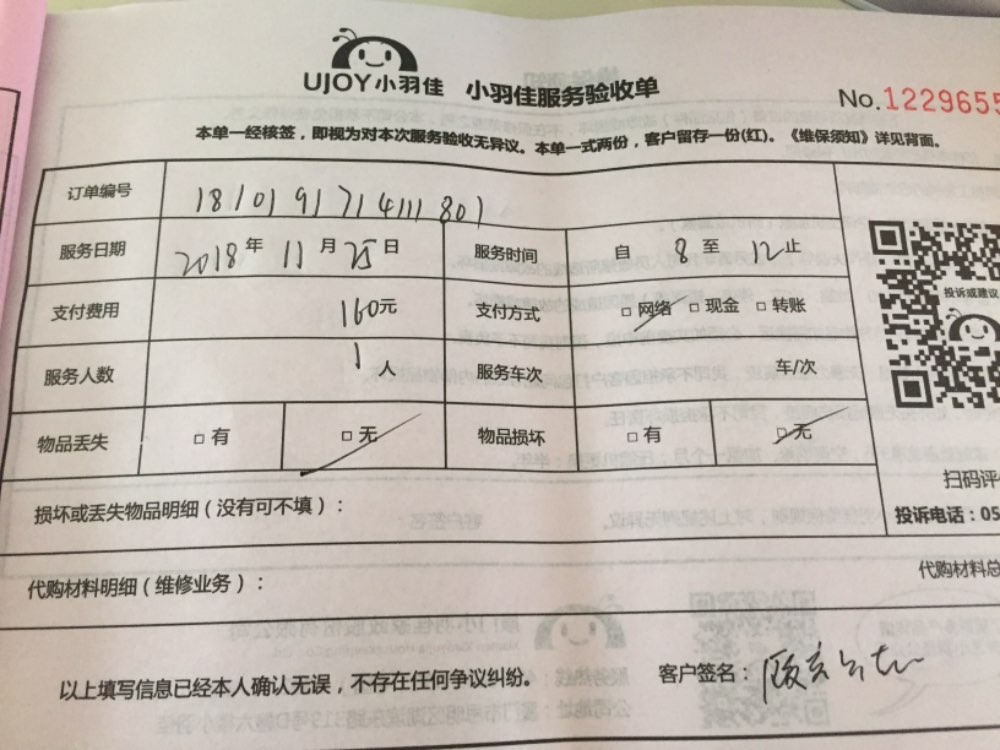 UJOY小羽佳 小羽佳服务验收单
No.1229655
本单一经核签，即视为对本次服务验收无异议。本单一式两份，客户留存一份(红)。《维保须知》详见背面。
订单编号 181019171411801
服务日期 2018年11月25日 服务时间 自 8 至 12止
支付费用 160元 支付方式 □ 网络 □ 现金 □ 转账
服务人数 1人 服务车次 车/次
物品丢失 □ 有 □ 无 物品损坏 □ 有 □ 无
投诉或建议
扫码评
损坏或丢失物品明细（没有可不填）：
投诉电话：05
代购材料明细（维修业务）：
代购材料总
以上填写信息已经本人确认无误，不存在任何争议纠纷。 客户签名：